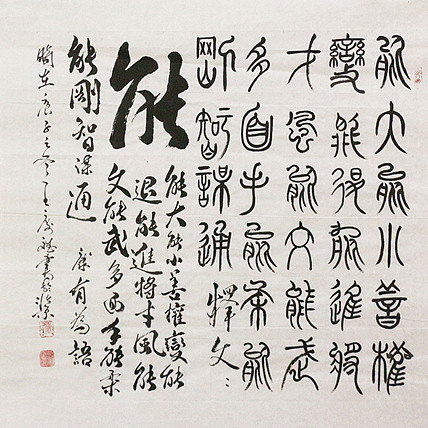 能大能小善權
變能退能進將
才風能文能武
多面手能柔能
剛智謀通 釋文:
能
能大能小善權變能
退能進將才風能
文能武多面手能柔
能剛智謀通
康有為語
時在庚子之冬